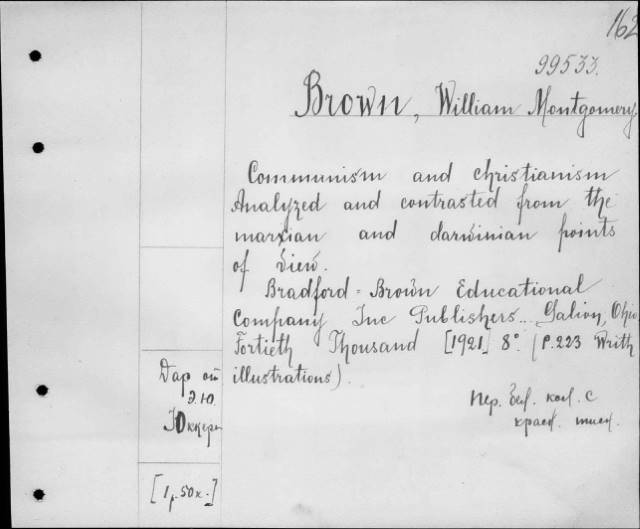 162
99533.
Brown, William Montgomery
Communism and christianism
Analyzed and contrasted from the
marxian and darwinian points
of view.
Bradford-Brown Educational
Company Inc Publishers... Galion, Ohio
Fortieth Thousand [1921] 8° (p.223 Writh
illustrations).
Дар от
Э.Ю.
Юккерп
[1р.50к.]
пер. кол. с
красн. тисн.